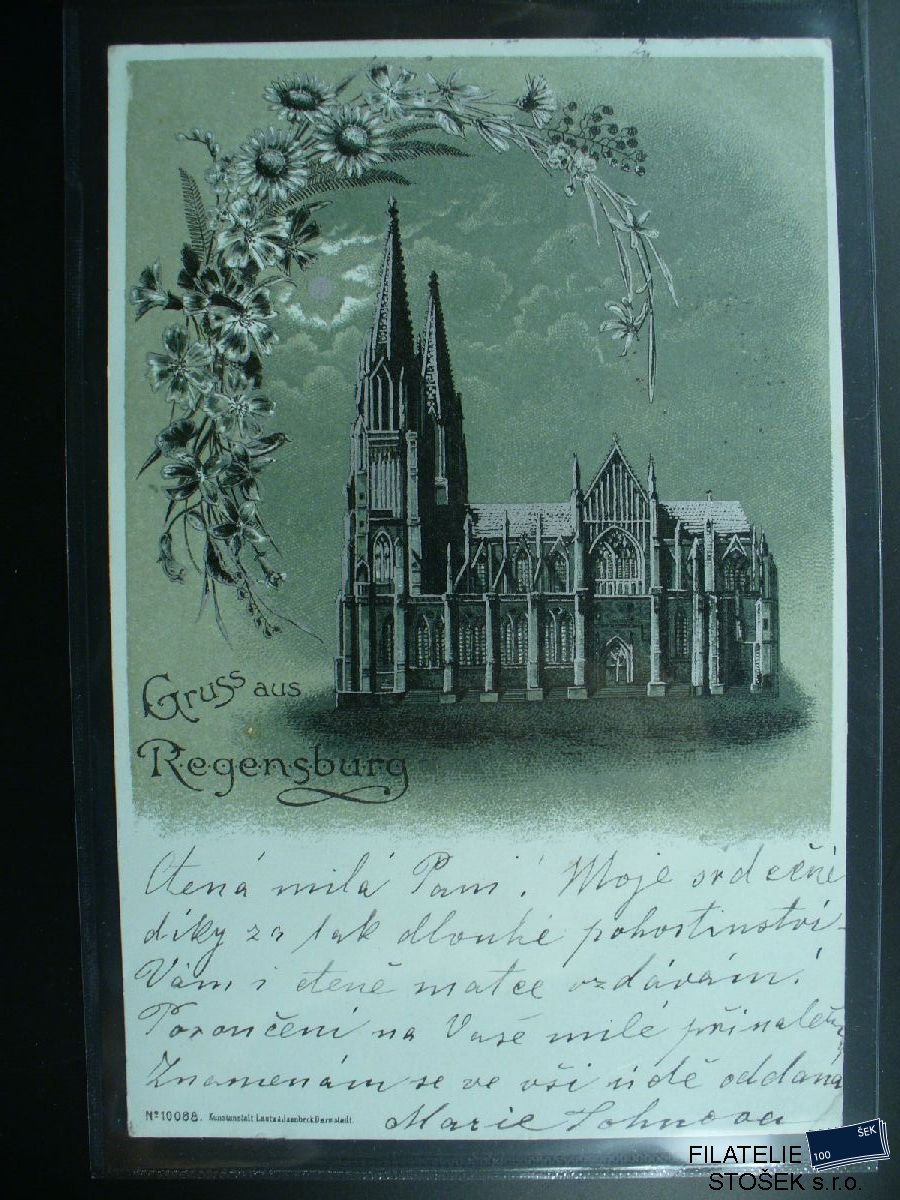 Gruss aus
Regensburg
Ctená milá Paní! Moje srdečné
díky za tak dlouhé pohostinství
Vám i ctené matce vzdávám!
Poroučení na Vaše milé
Znamenám se ve vší úctě oddaná
Marie
No 10088. Kunstanstalt Lautz & Isenbeck Darmstadt.
FILATELIE
STOŠEK s.r.o.
100
ŠEK